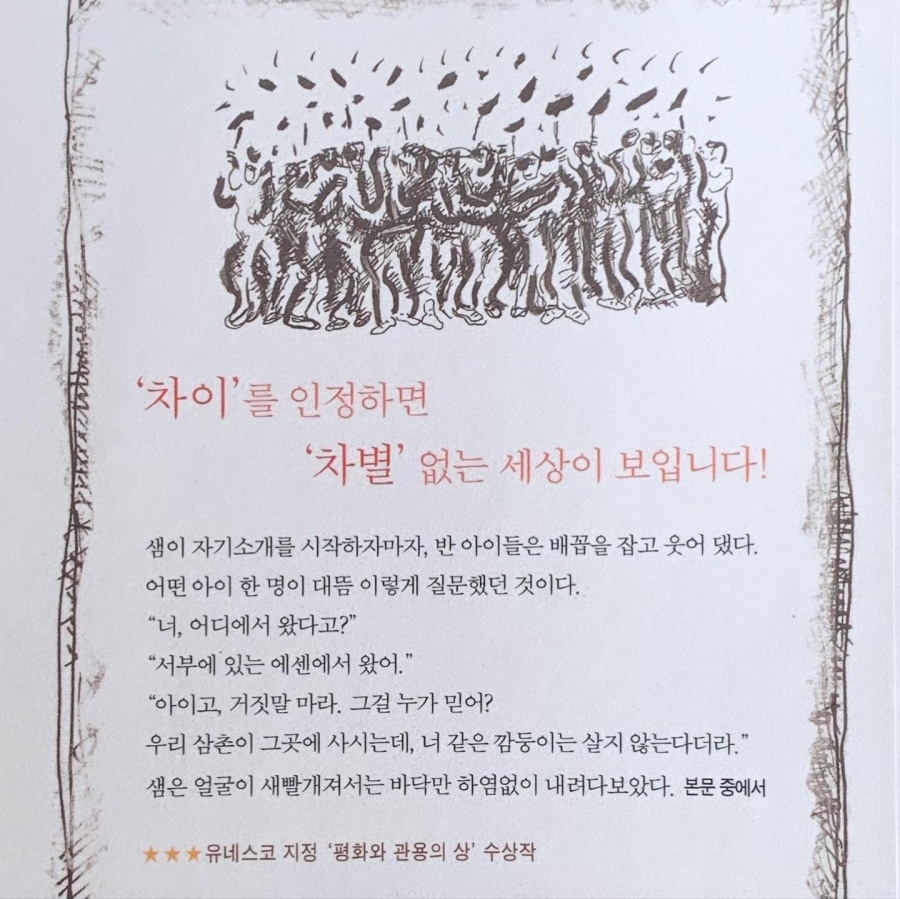 ‘차이’를 인정하면
‘차별’ 없는 세상이 보입니다!
샘이 자기소개를 시작하자마자, 반 아이들은 배꼽을 잡고 웃어 댔다.
어떤 아이 한 명이 대뜸 이렇게 질문했던 것이다.
“너, 어디에서 왔다고?”
“서부에 있는 에센에서 왔어.”
“아이고, 거짓말 마라. 그걸 누가 믿어?
우리 삼촌이 그곳에 사시는데, 너 같은 깜둥이는 살지 않는다더라.”
샘은 얼굴이 새빨개져서는 바닥만 하염없이 내려다보았다. 본문 중에서
★★★유네스코 지정 ‘평화와 관용의 상’ 수상작